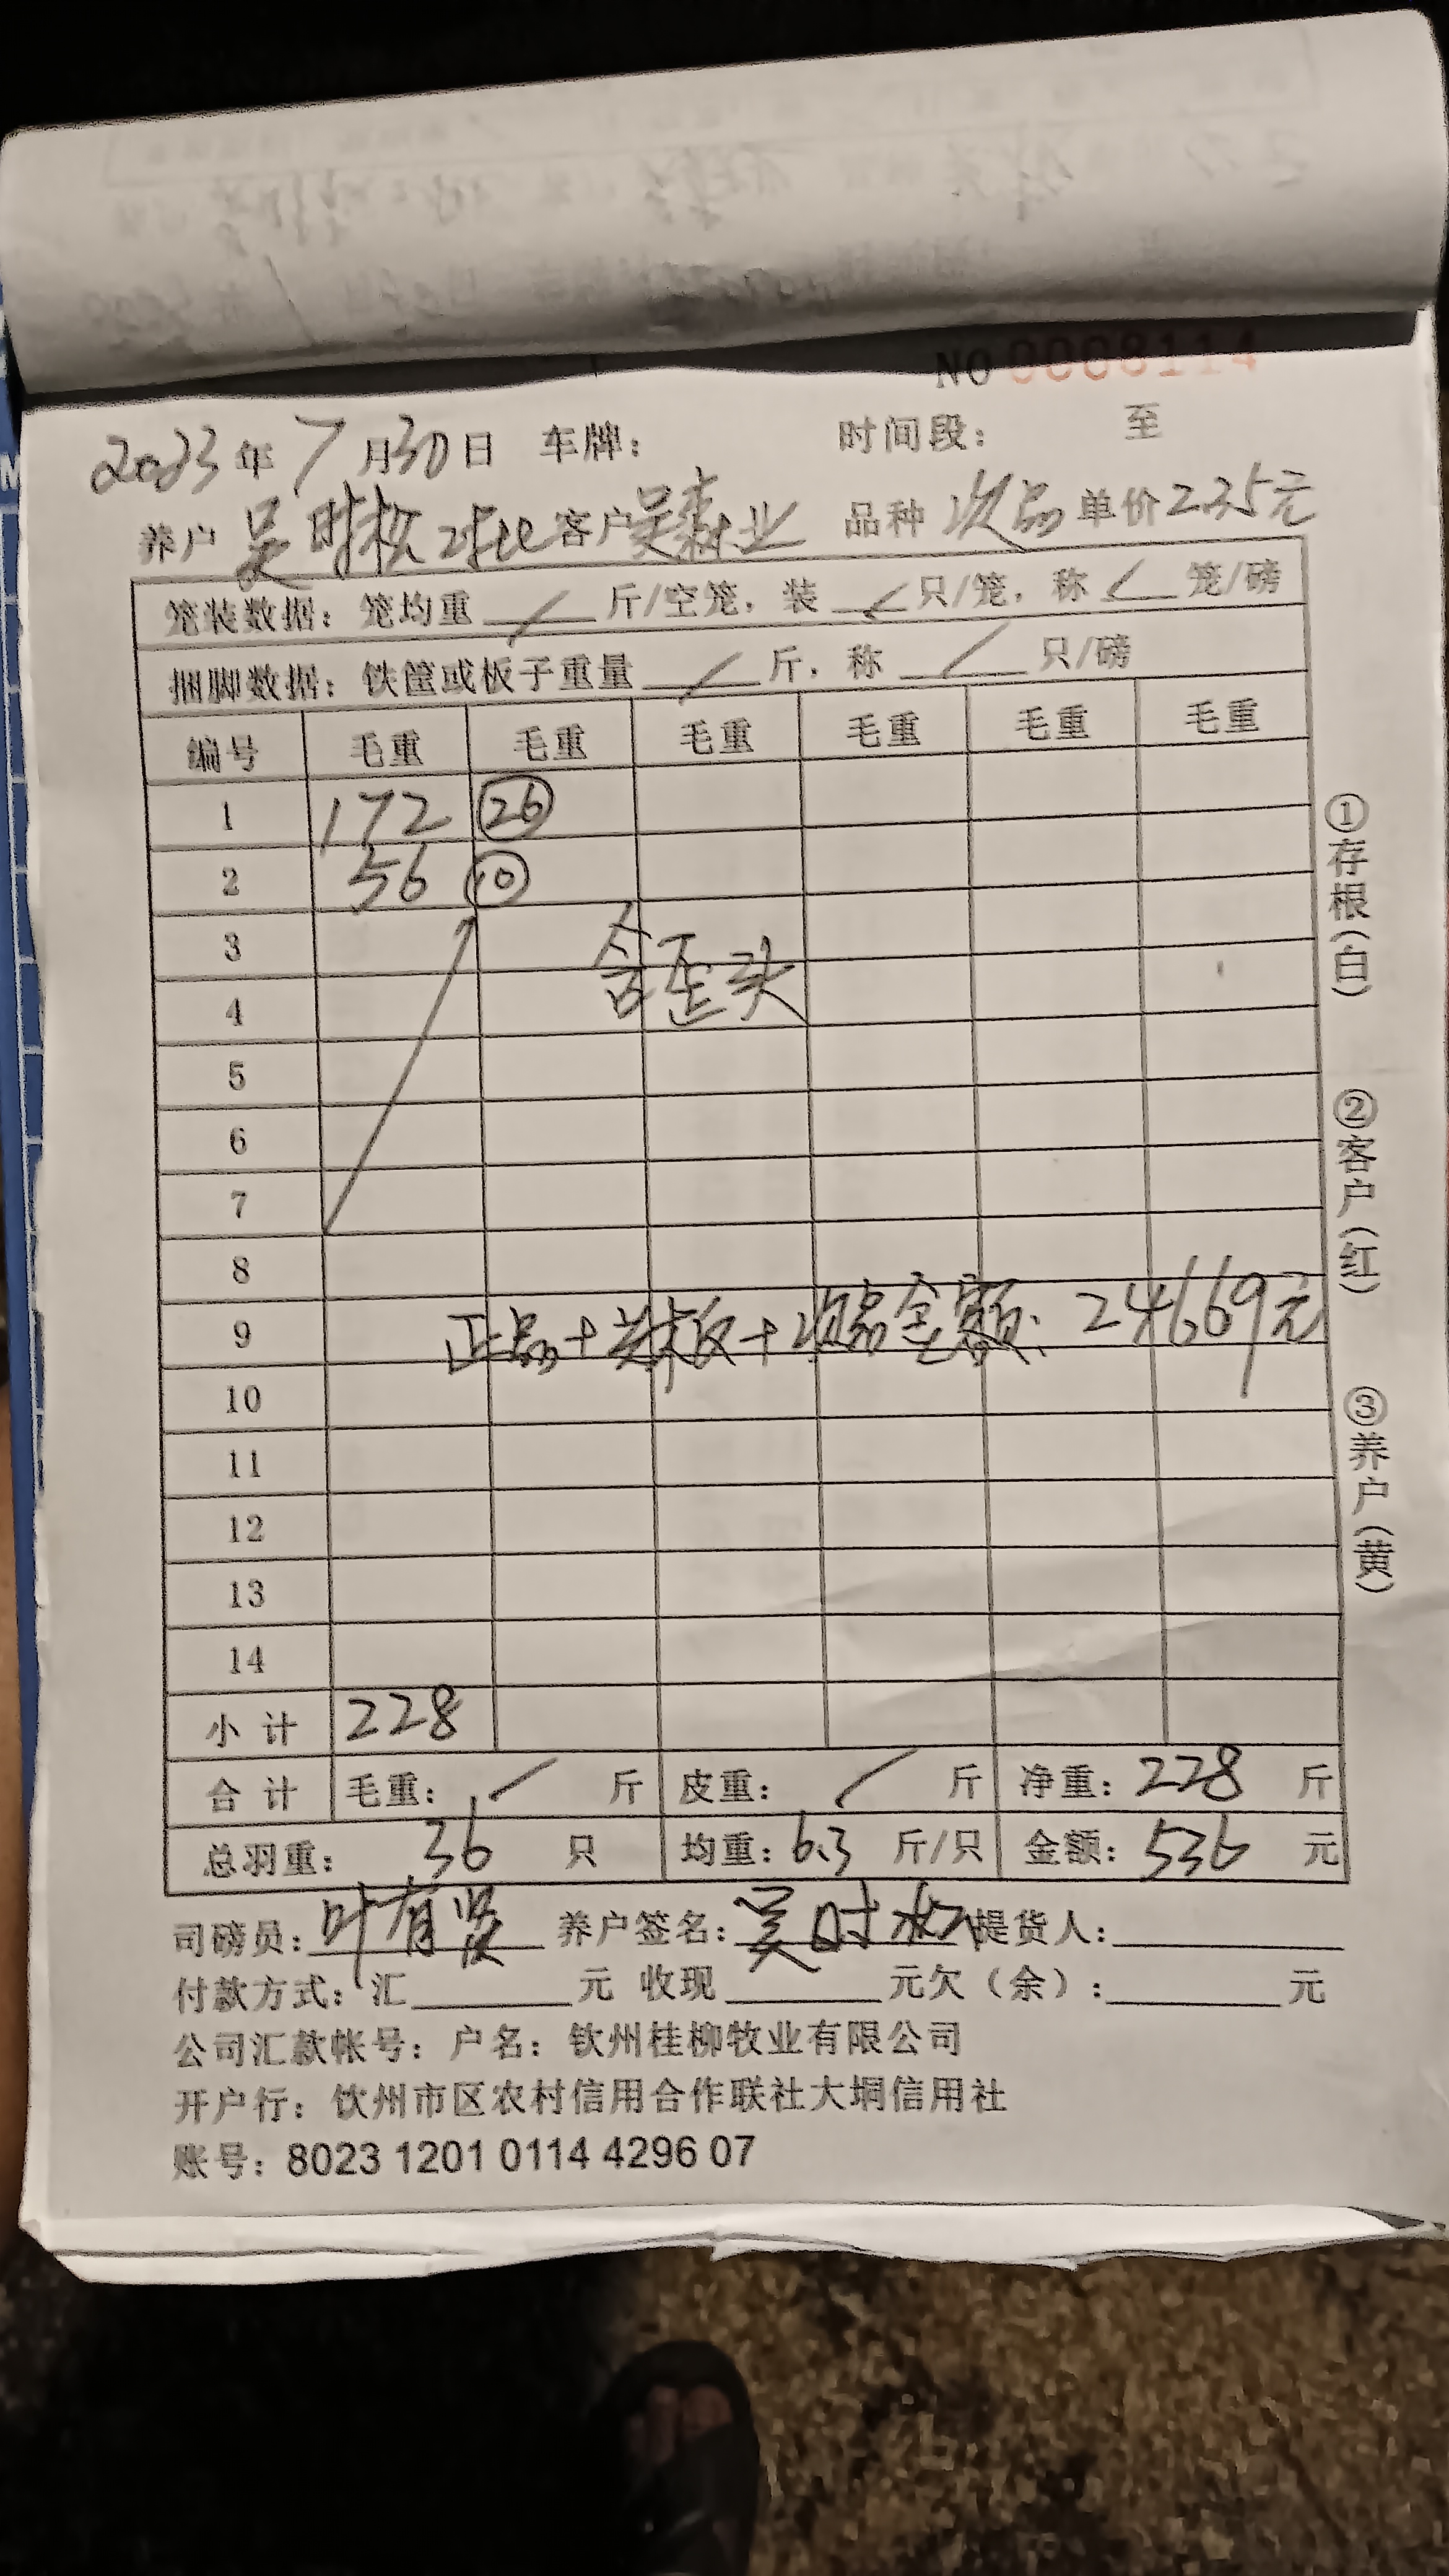 NO 0008114
2023年7月30日 车牌: 时间段: 至
养户 吴时 对比 客户 吴森业 品种 次品 单价 2.35元
笼装数据: 笼均重 / 斤/空笼, 装 / 只/笼, 称 / 笼/磅
捆脚数据: 铁筐或板子重量 / 斤, 称 / 只/磅
编号 毛重 毛重 毛重 毛重 毛重 毛重
1 172 26
2 56 10
3
含歪头
4
5
6
7
8
9 正品+ +次品金额: 24669元
10
11
12
13
14
小计 228
合计 毛重: / 斤 皮重: / 斤 净重: 228 斤
总羽重: 36 只 均重: 6.3 斤/只 金额: 536 元
司磅员: 叶有贤 养户签名: 吴时 提货人:
付款方式: 汇 元 收现 元欠(余): 元
公司汇款帐号: 户名: 钦州桂柳牧业有限公司
开户行: 钦州市区农村信用合作联社大垌信用社
账号: 8023 1201 0114 4296 07
①存根(白)
②客户(红)
③养户(黄)